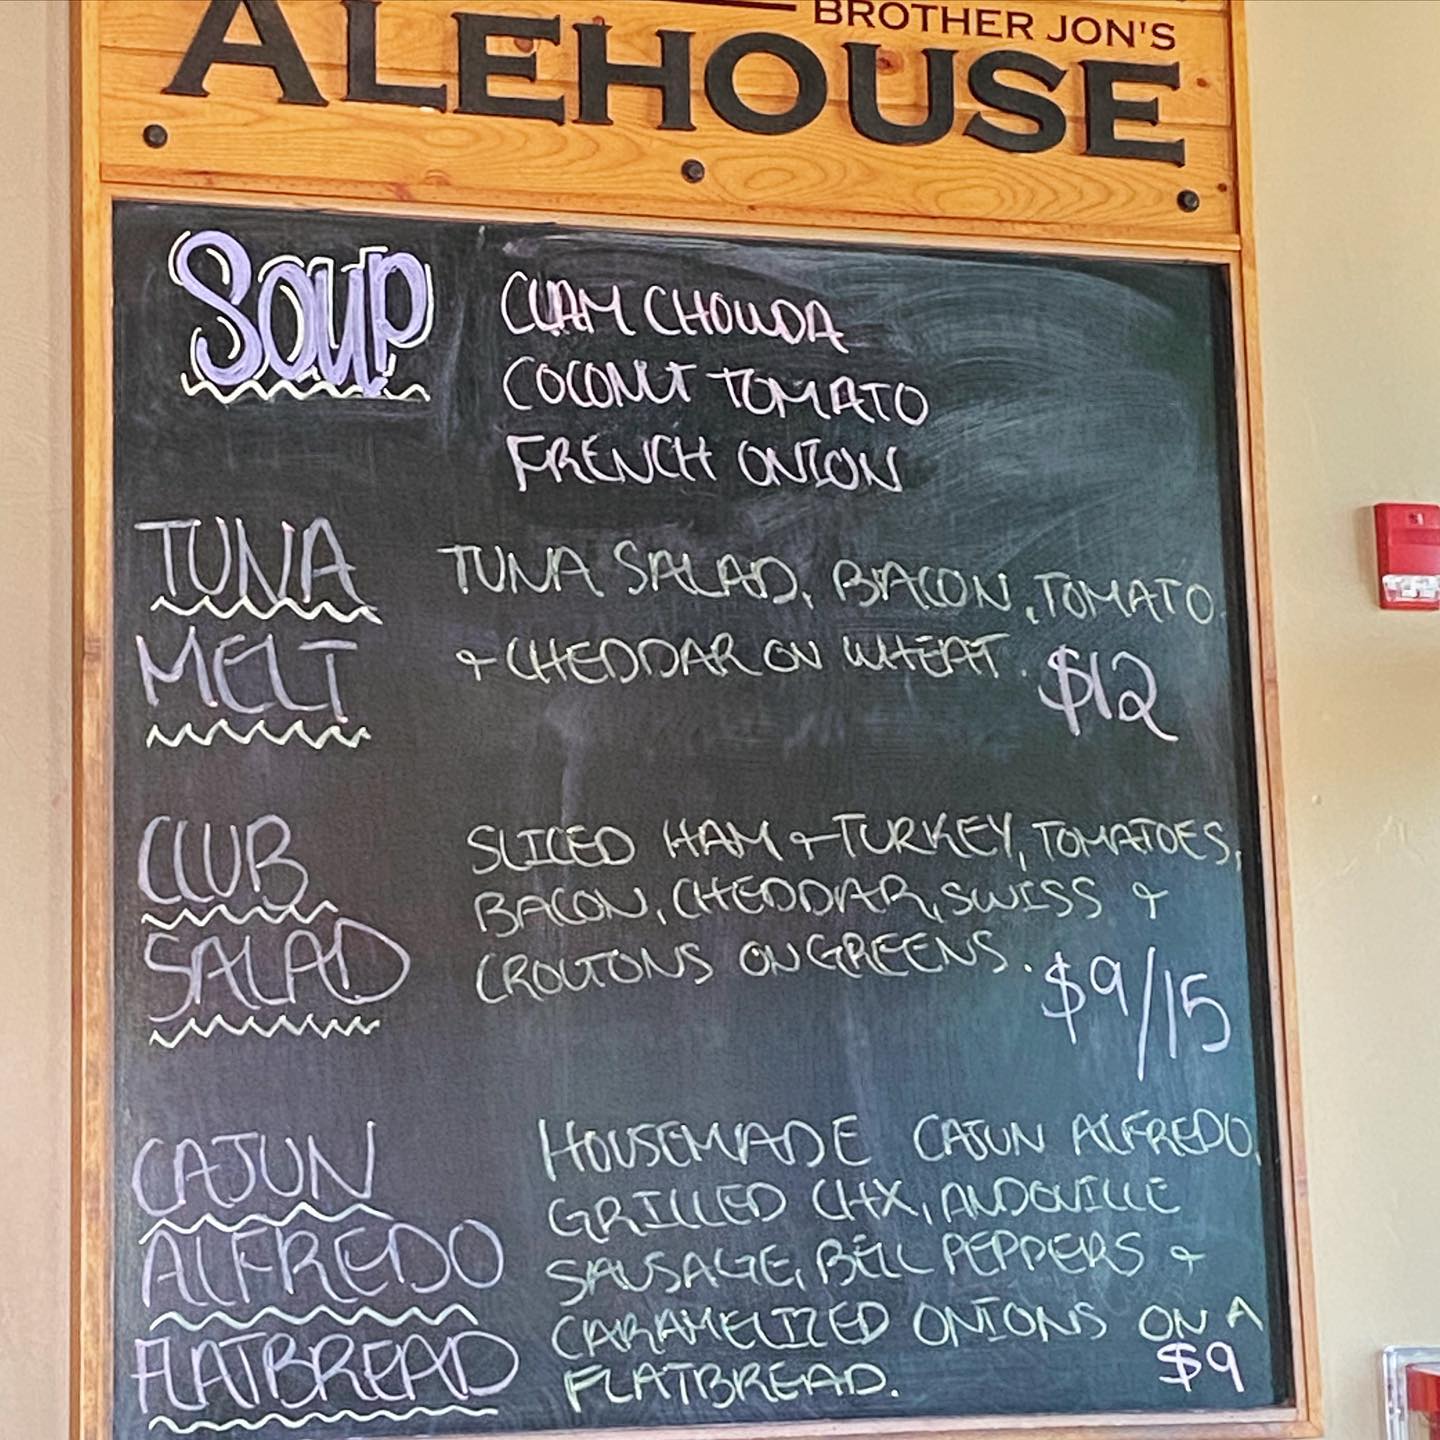 BROTHER JON'S
ALEHOUSE
SOUP
CLAM CHOWDA
COCONUT TOMATO
FRENCH ONION
TUNA
MELT
TUNA SALAD, BACON, TOMATO
+ CHEDDAR ON WHEAT. $12
CLUB
SALAD
SLICED HAM + TURKEY, TOMATOES,
BACON, CHEDDAR, SWISS +
CROUTONS ON GREENS. $9/15
CAJUN
ALFREDO
FLATBREAD
HOUSEMADE CAJUN ALFREDO,
GRILLED CHX, ANDOUILLE
SAUSAGE, BELL PEPPERS +
CARAMELIZED ONIONS ON A
FLATBREAD. $9